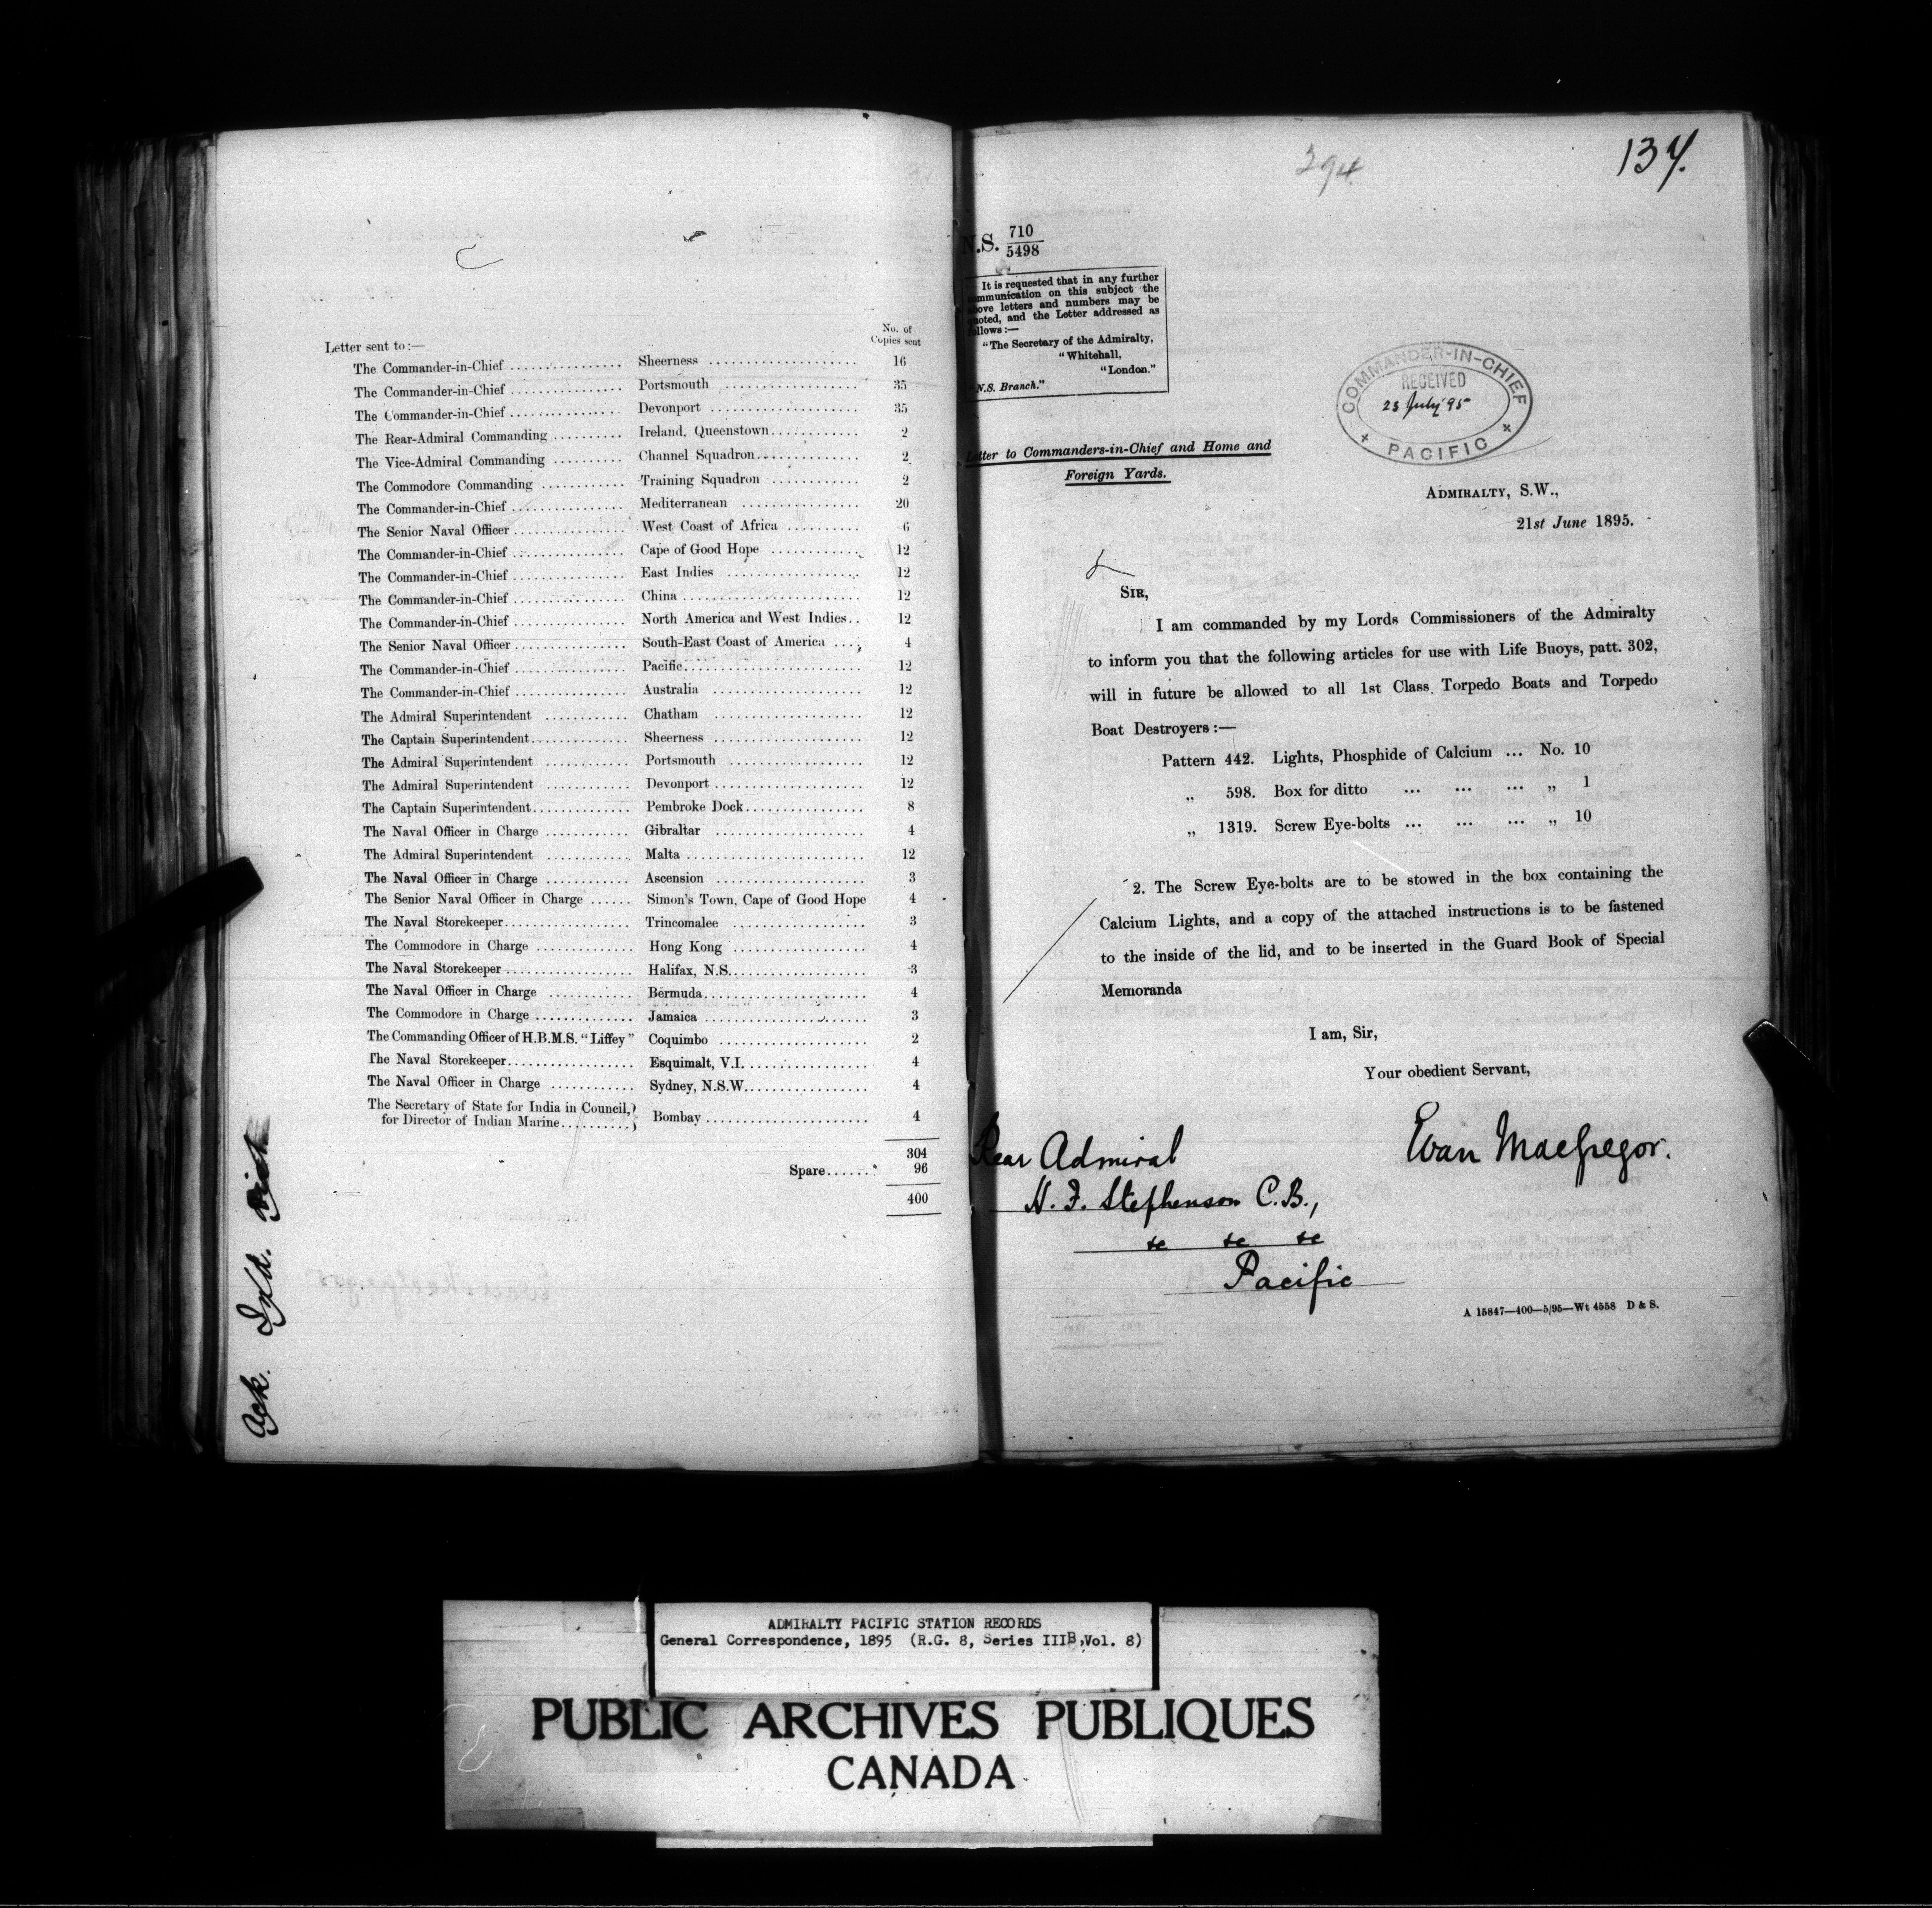 No. of
Copies sent
Letter sent to:—
The Commander-in-Chief ................ Sheerness .................... 16
The Commander-in-Chief ................ Portsmouth .................... 35
The Commander-in-Chief ................ Devonport .................... 35
The Rear-Admiral Commanding .......... Ireland, Queenstown............ 2
The Vice-Admiral Commanding .......... Channel Squadron.............. 2
The Commodore Commanding ............ Training Squadron ............ 2
The Commander-in-Chief ................ Mediterranean ................ 20
The Senior Naval Officer................ West Coast of Africa .......... 6
The Commander-in-Chief ................ Cape of Good Hope ............ 12
The Commander-in-Chief ................ East Indies .................. 12
The Commander-in-Chief ................ China ........................ 12
The Commander-in-Chief ................ North America and West Indies.. 12
The Senior Naval Officer................ South-East Coast of America .... 4
The Commander-in-Chief ................ Pacific........................ 12
The Commander-in-Chief ................ Australia .................... 12
The Admiral Superintendent ............ Chatham .................... 12
The Captain Superintendent.............. Sheerness .................... 12
The Admiral Superintendent ............ Portsmouth .................. 12
The Admiral Superintendent ............ Devonport .................... 12
The Captain Superintendent.............. Pembroke Dock................ 8
The Naval Officer in Charge ............ Gibraltar .................... 4
The Admiral Superintendent ............ Malta ........................ 12
The Naval Officer in Charge ............ Ascension .................... 3
The Senior Naval Officer in Charge ...... Simon's Town, Cape of Good Hope 4
The Naval Storekeeper.................. Trincomalee .................. 3
The Commodore in Charge .............. Hong Kong .................. 4
The Naval Storekeeper .................. Halifax, N.S................... 3
The Naval Officer in Charge ............ Bermuda...................... 4
The Commodore in Charge .............. Jamaica ...................... 3
The Commanding Officer of H.B.M.S. "Liffey" Coquimbo .................... 2
The Naval Storekeeper.................. Esquimalt, V.I. ................ 4
The Naval Officer in Charge ............ Sydney, N.S.W................. 4
The Secretary of State for India in Council,}
for Director of Indian Marine..........} Bombay ...................... 4
304
Spare...... 96
400
Ack.
134.
294.
N.S. 710
5498
It is requested that in any further
communication on this subject the
above letters and numbers may be
quoted, and the Letter addressed as
follows:—
"The Secretary of the Admiralty,
"Whitehall,
"London."
"N.S. Branch."
COMMANDER-IN-CHIEF
RECEIVED
23 July 95
PACIFIC
Letter to Commanders-in-Chief and Home and
Foreign Yards.
ADMIRALTY, S.W.,
21st June 1895.
SIR,
I am commanded by my Lords Commissioners of the Admiralty
to inform you that the following articles for use with Life Buoys, patt. 302,
will in future be allowed to all 1st Class Torpedo Boats and Torpedo
Boat Destroyers:—
Pattern 442. Lights, Phosphide of Calcium ... No. 10
" 598. Box for ditto ... ... ... " 1
" 1319. Screw Eye-bolts ... ... ... " 10
2. The Screw Eye-bolts are to be stowed in the box containing the
Calcium Lights, and a copy of the attached instructions is to be fastened
to the inside of the lid, and to be inserted in the Guard Book of Special
Memoranda
I am, Sir,
Your obedient Servant,
Evan MacGregor.
Rear Admiral
H. F. Stephenson C.B.,
&c &c &c
Pacific
A 15847—400—5/95—Wt 4558 D & S.
ADMIRALTY PACIFIC STATION RECORDS
General Correspondence, 1895 (R.G. 8, Series IIIB, Vol. 8)
PUBLIC ARCHIVES PUBLIQUES
CANADA